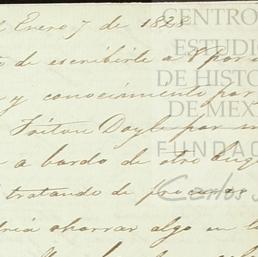 Enero 7 de 1828
de escribirle a V por
y conocimiento por
Doyle por
a bordo de otro buq
tratando de procurar
ahorrar algo en l
CENTRO
ESTUDIO
DE HISTO
DE MEX
FUNDAC
Carlos